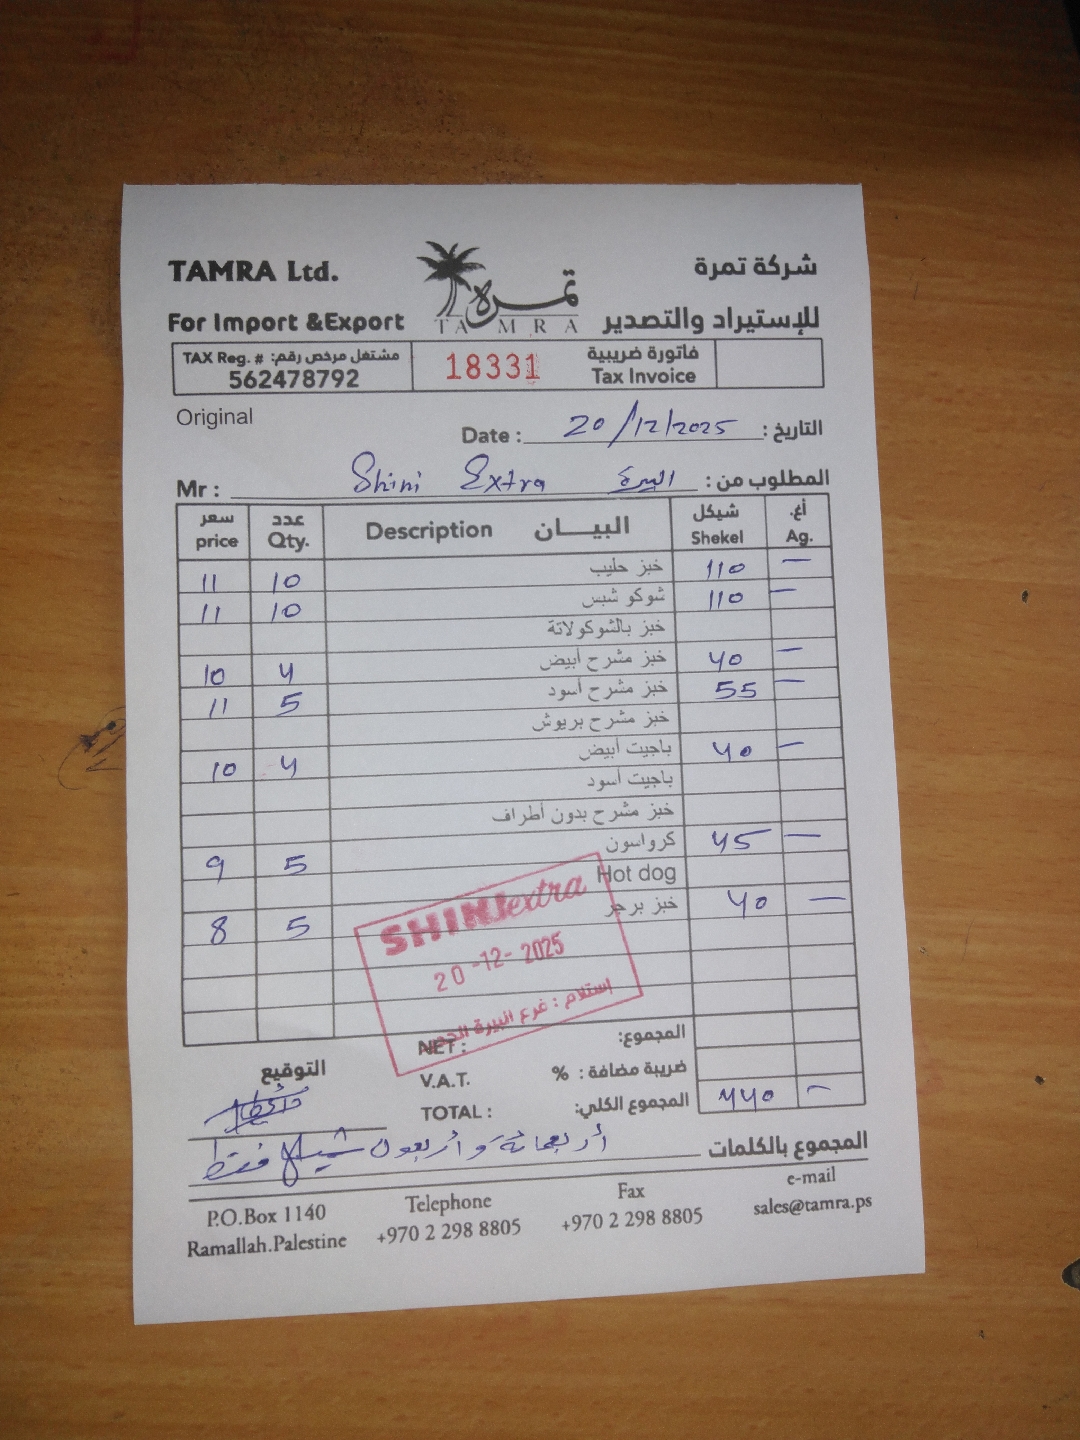 TAMRA Ltd. شركة تمرة
تمره
For Import &Export TAMRA للإستيراد والتصدير
TAX Reg. # مشتغل مرخص رقم: 18331 فاتورة ضريبية
562478792 Tax Invoice
Original
Date : 20/12/2025 التاريخ :
Mr : Shini Extra البيرة المطلوب من :
سعر عدد Description البيـــان شيكل أغ.
price Qty. Shekel Ag.
11 10 خبز حليب 110 —
11 10 شوكو شبس 110 —
خبز بالشوكولاتة
10 4 خبز مشرح أبيض 40 —
11 5 خبز مشرح أسود 55 —
خبز مشرح بريوش
10 4 باجيت أبيض 40 —
باجيت أسود
خبز مشرح بدون أطراف
9 5 كرواسون 45 —
Hot dog
8 5 خبز برجر 40 —
SHINI extra
20-12-2025
إستلام : فرع البيرة
NET : المجموع:
التوقيع V.A.T. ضريبة مضافة : %
TOTAL : المجموع الكلي: 440 —
المجموع بالكلمات أربعمائة وأربعون شيكل فقط
P.O.Box 1140 Telephone Fax e-mail
Ramallah.Palestine +970 2 298 8805 +970 2 298 8805 sales@tamra.ps